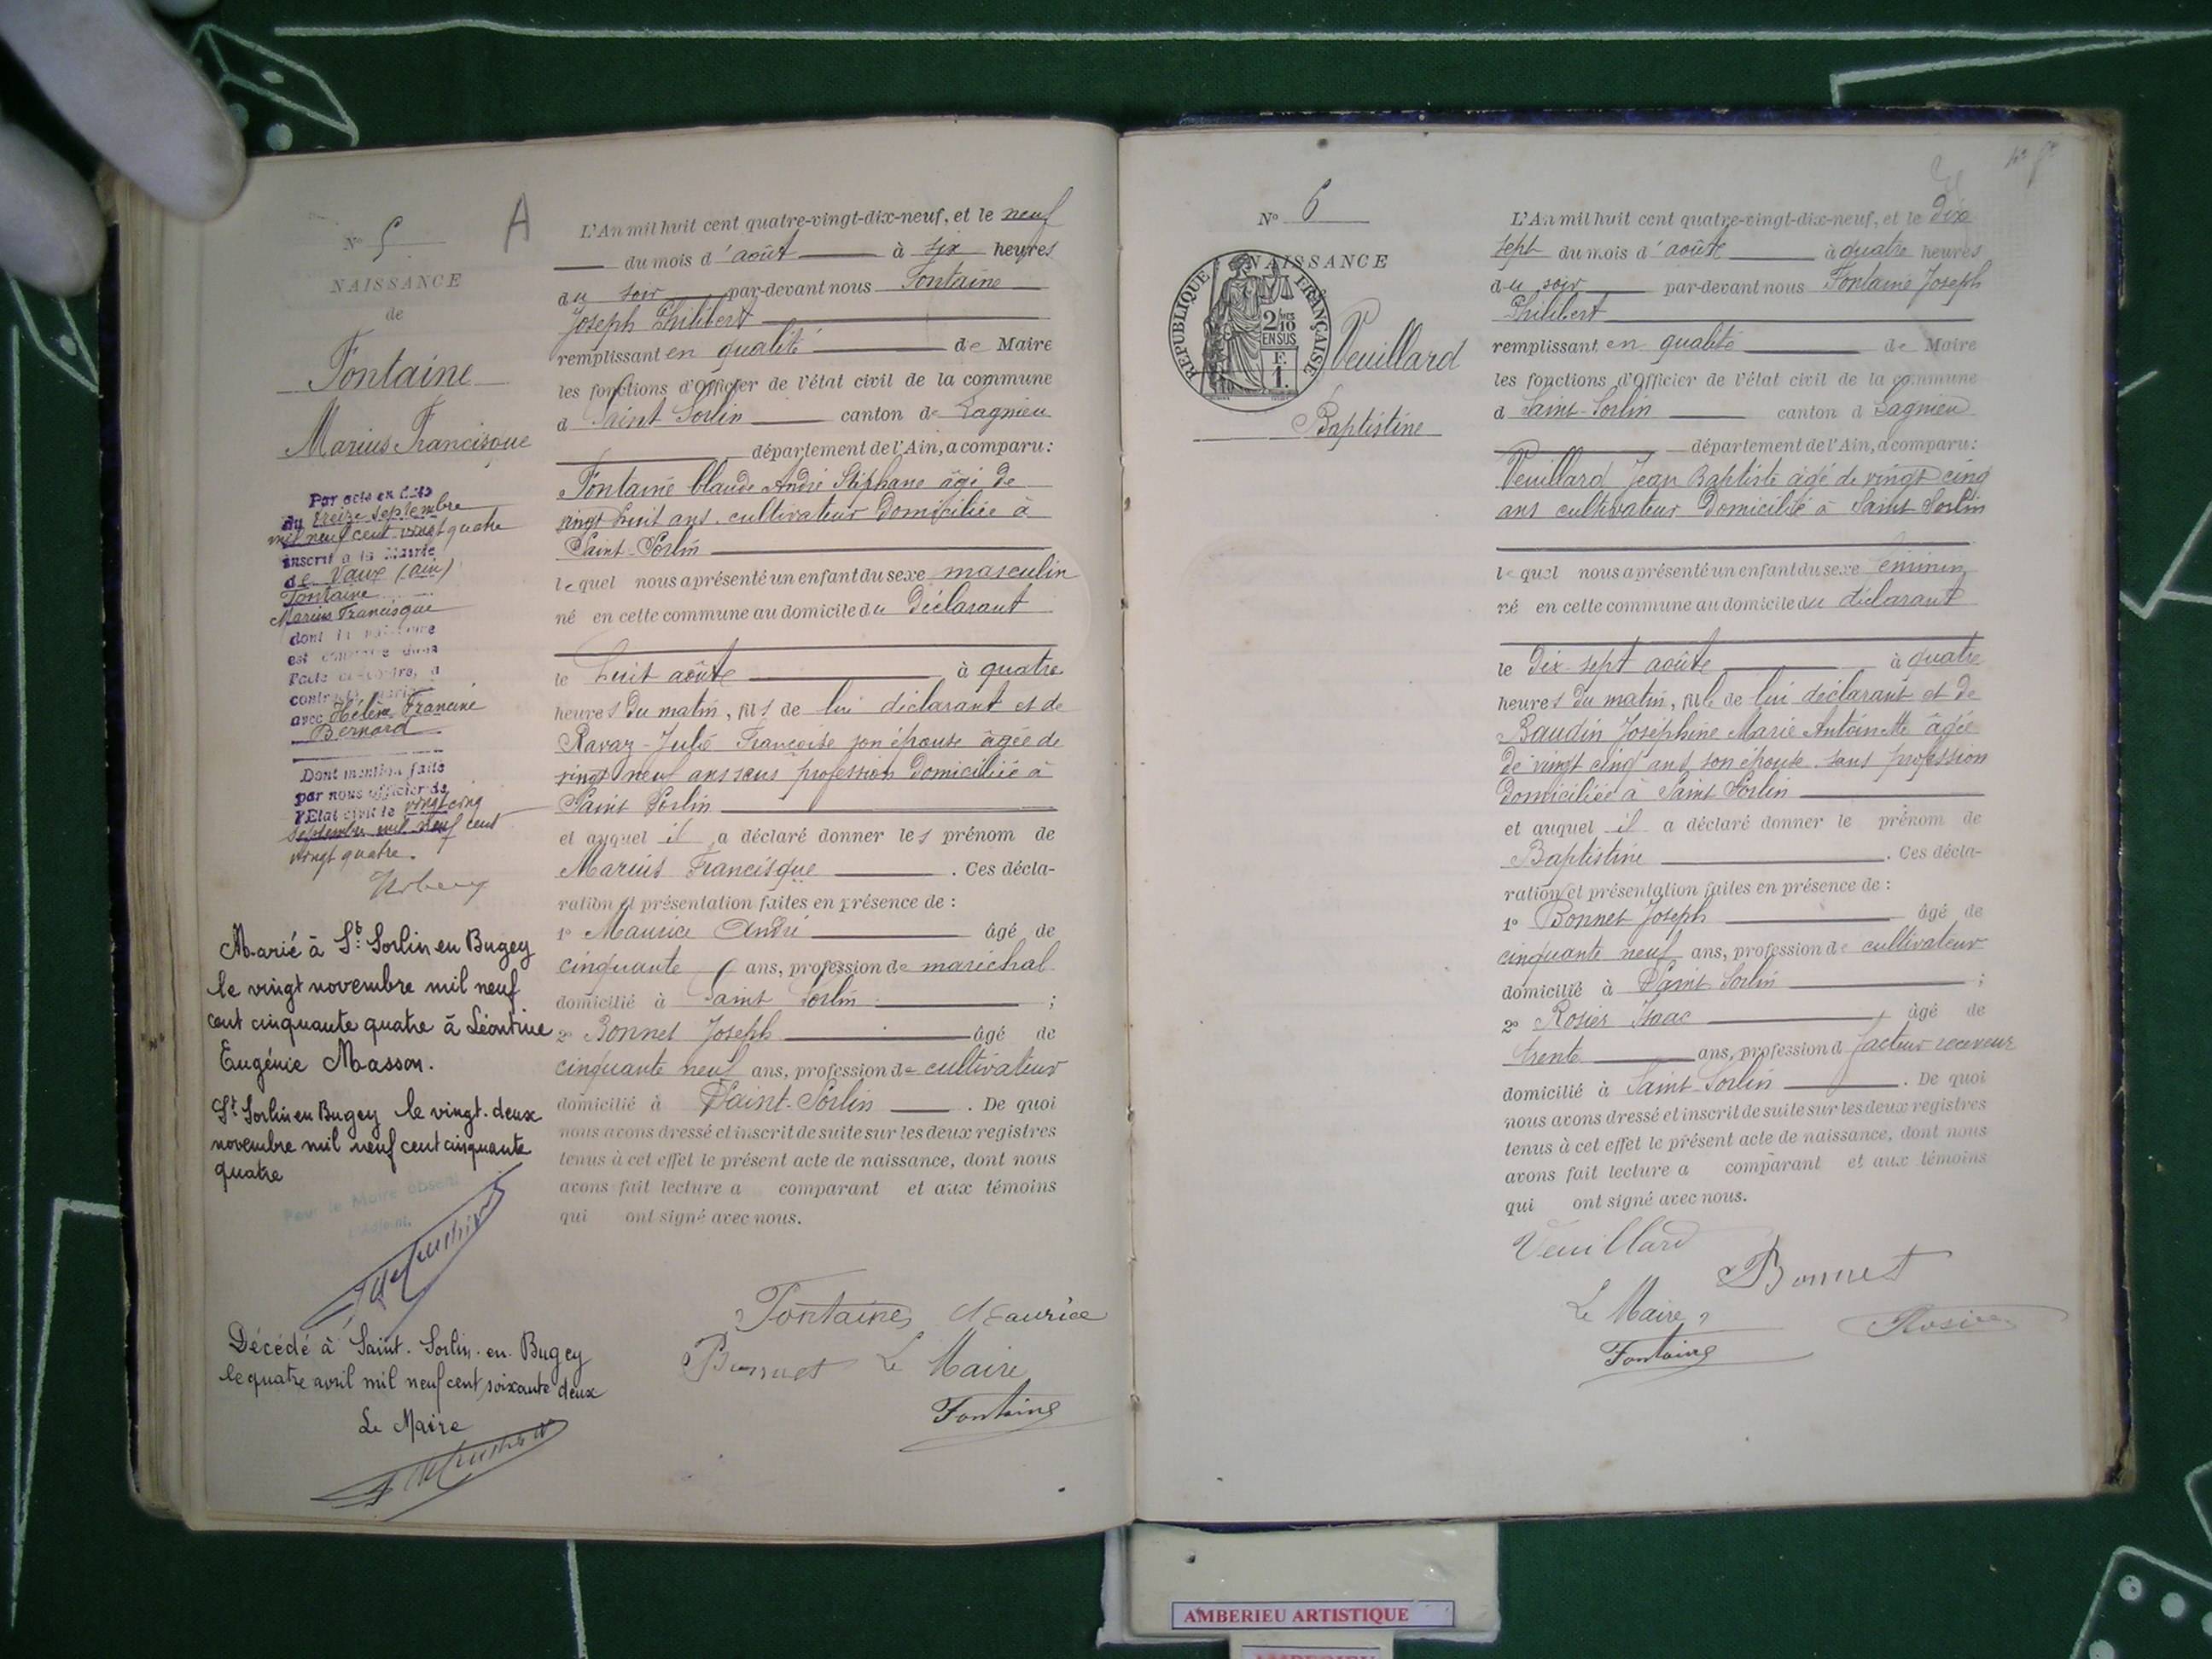 N° 5
NAISSANCE
de
Fontaine
Marius Francisque
Par acte en date
du treize septembre
mil neuf cent vingt quatre
inscrit à la Mairie
de Vaux (ain)
Fontaine
Marius Francisque
dont la naissance
est constatée dans
l'acte ci-contre, a
contracté mariage
avec Hélène Francine
Bernard
Dont mention faite
par nous officier de
l'Etat civil le vingt cinq
septembre mil neuf cent
vingt quatre.
Marié à St Sorlin en Bugey
le vingt novembre mil neuf
cent cinquante quatre à Léontine
Eugénie Masson.
St Sorlin en Bugey le vingt-deux
novembre mil neuf cent cinquante
quatre
Pour le Maire absent
l'Adjoint,
Décédé à Saint-Sorlin-en-Bugey
le quatre avril mil neuf cent soixante deux
Le Maire
A
L'An mil huit cent quatre-vingt-dix-neuf, et le neuf
du mois d'août à six heures
du soir par-devant nous Fontaine
Joseph Philibert
remplissant en qualité de Maire
les fonctions d'Officier de l'état civil de la commune
d Saint Sorlin canton de Lagnieu
département de l'Ain, a comparu:
Fontaine Claude André Stéphane âgé de
vingt huit ans, cultivateur domiciliée à
Saint-Sorlin
lequel nous a présenté un enfant du sexe masculin
né en cette commune au domicile du déclarant
le huit août à quatre
heures du matin, fils de lui déclarant et de
Ravaz Julie Françoise son épouse âgée de
vingt neuf ans sans profession domiciliée à
Saint Sorlin
et auquel il a déclaré donner les prénom de
Marius Francisque . Ces décla-
ration et présentation faites en présence de :
1° Maurice André âgé de
cinquante ans, profession de maréchal
domicilié à Saint Sorlin ;
2° Bonnet Joseph âgé de
cinquante neuf ans, profession de cultivateur
domicilié à Saint-Sorlin . De quoi
nous avons dressé et inscrit de suite sur les deux registres
tenus à cet effet le présent acte de naissance, dont nous
avons fait lecture a comparant et aux témoins
qui ont signé avec nous.
Fontaine Maurice
Bonnet Le Maire
Fontaine
N° 6
NAISSANCE
REPUBLIQUE FRANÇAISE
2/10
EN SUS
F.
1.
Veuillard
Baptistine
L'An mil huit cent quatre-vingt-dix-neuf, et le dix
sept du mois d'août à quatre heures
du soir par-devant nous Fontaine Joseph
Philibert
remplissant en qualité de Maire
les fonctions d'Officier de l'état civil de la commune
d Saint-Sorlin canton d Lagnieu
département de l'Ain, a comparu:
Veuillard Jean Baptiste âgé de vingt cinq
ans cultivateur domicilié à Saint Sorlin
lequel nous a présenté un enfant du sexe féminin
né en cette commune au domicile du déclarant
le dix-sept août à quatre
heures du matin, fille de lui déclarant et de
Baudin Joséphine Marie Antoinette âgée
de vingt cinq ans son épouse sans profession
domiciliée à Saint Sorlin
et auquel il a déclaré donner le prénom de
Baptistine . Ces décla-
ration et présentation faites en présence de :
1° Bonnet Joseph âgé de
cinquante neuf ans, profession de cultivateur
domicilié à Saint Sorlin ;
2° Rosier Isaac âgé de
trente ans, profession d facteur receveur
domicilié à Saint-Sorlin . De quoi
nous avons dressé et inscrit de suite sur les deux registres
tenus à cet effet le présent acte de naissance, dont nous
avons fait lecture a comparant et aux témoins
qui ont signé avec nous.
Veuillard
Bonnet
Le Maire
Rosier
Fontaine
AMBERIEU ARTISTIQUE